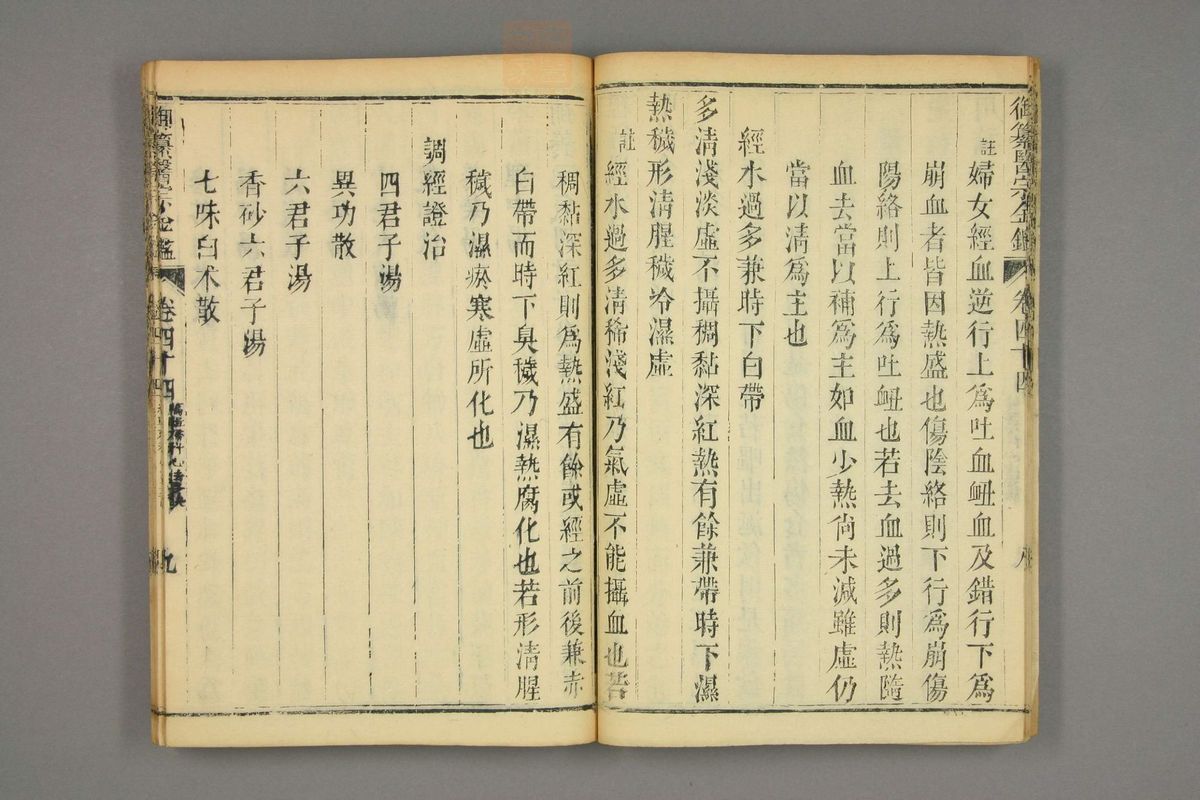 御纂醫宗金鑑 卷四十四 八
註婦女經血逆行上為吐血衄血及錯行下為
崩血者皆因熱盛也傷陰絡則下行為崩傷
陽絡則上行為吐衄也若去血過多則熱隨
血去當以補為主如血少熱尚未減雖虛仍
當以清為主也
經水過多兼時下白帶
多清淺淡虛不攝稠黏深紅熱有餘兼帶時下濕
熱穢形清腥穢冷濕虛
註經水過多清稀淺紅乃氣虛不能攝血也若
稠黏深紅則為熱盛有餘或經之前後兼赤
白帶而時下臭穢乃濕熱腐化也若形清腥
穢乃濕瘀寒虛所化也
調經證治
四君子湯
異功散
六君子湯
香砂六君子湯
七味白朮散
御纂醫宗金鑑 卷四十四 九